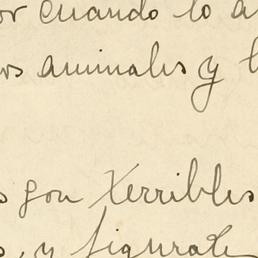 or cuando lo a
os animales y l
s son terribles
s, y figurate